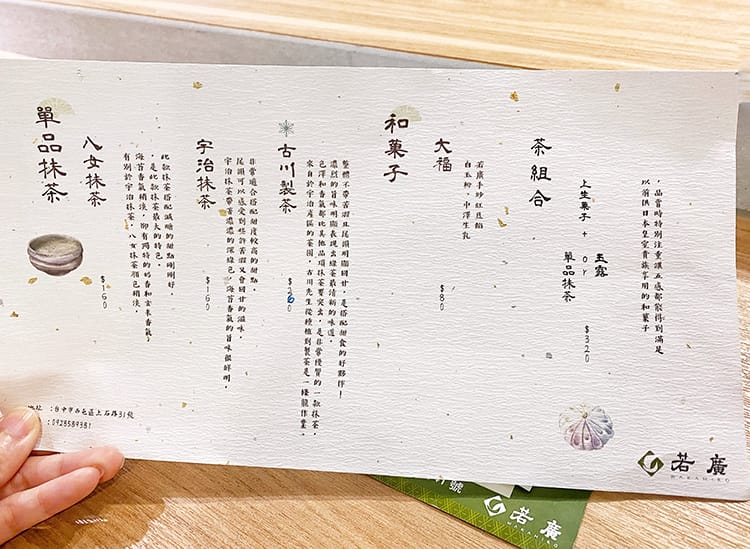 單品抹茶
八女抹茶
$160
有別於宇治抹茶，八女抹茶顏色稍淺，
海苔香氣稍淡，卻有獨特的奶香和玄米香氣，
是此款抹茶最大的特色。
此款抹茶搭配減糖的甜點剛剛好。
宇治抹茶
$160
宇治抹茶帶著濃濃的深綠色，海苔香氣的旨味很鮮明，
尾韻可以感受到些許苦澀又會回甘的滋味，
非常適合搭配甜度較高的甜點。
古川製茶
$260
來自於宇治產區的茶園，古川先生從種植到製茶是一條龍作業。
色澤和香氣都比其他品項抹茶要突出，是非常優質的一款抹茶，
濃烈的旨味明顯表現出綠茶最清新的味道，
整體不帶苦澀且尾韻明顯回甘，是搭配甜食的好夥伴！
和菓子
大福
$80
白玉粉、中澤生乳
若廣手炒紅豆餡
茶組合
上生菓子 + 玉露 or 單品抹茶
$320
以前供日本皇室貴族享用的和菓子
，品嘗時特別注重讓五感都能得到滿足
地址：台中市西屯區上石路31號
：0923589381
若廣
WAKAHIRO
號
若廣